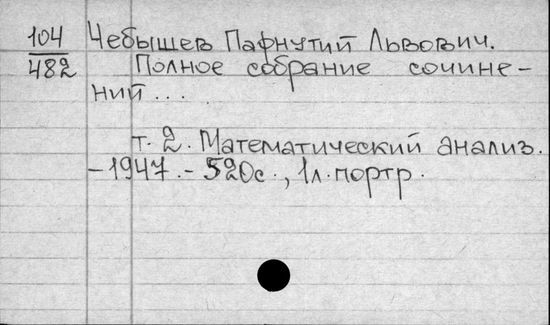 104 Чебышев Пафнутий Львович.
482 Полное собрание сочине-
ний...
т. 2. Математический анализ.
- 1947. - 520с., 1л. портр.